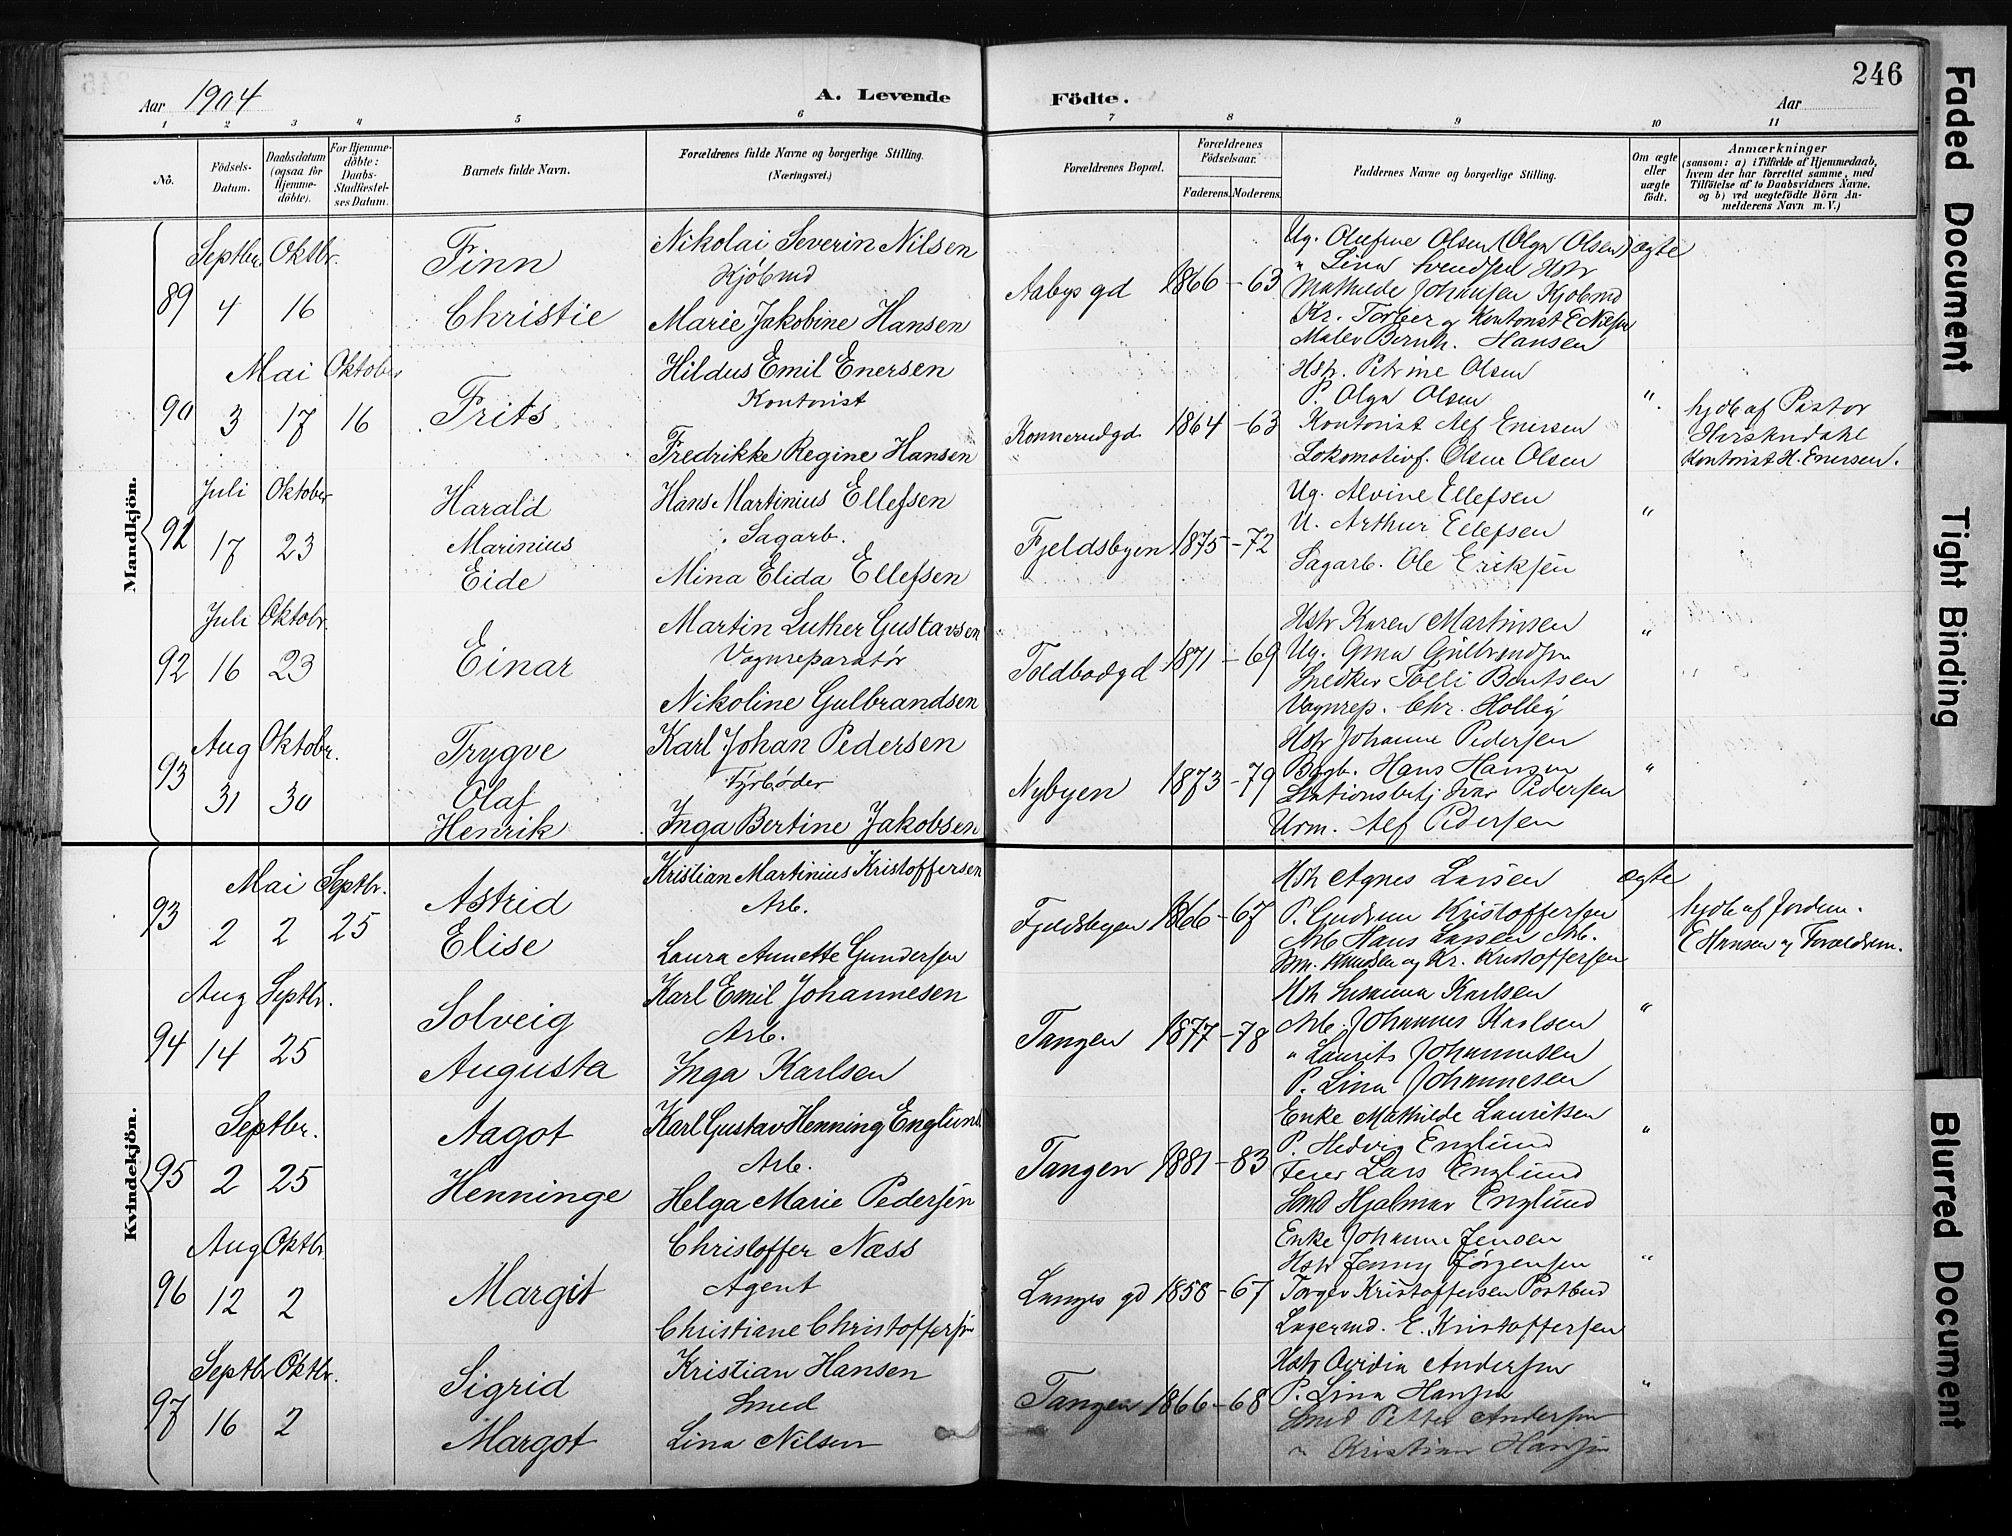 246
Aar 1904
A. Levende Födte.
Aar
1 2 3 4 5 6 7 8 9 10 11
No.
Födsels-Datum.
Daabsdatum (ogsaa for Hjemme-döbte).
For Hjemme-döbte: Daabs-Stadfæstel-ses Datum.
Barnets fulde Navn.
Forældrenes fulde Navne og borgerlige Stilling.
(Næringsvei.)
Forældrenes Bopæl.
Forældrenes Födselsaar.
Faderens. Moderens.
Faddernes Navne og borgerlige Stilling.
Om ægte eller uægte födt.
Anmærkninger
(saasom: a) i Tilfælde af Hjemmedaab,
hvem der har forrettet samme, med
Tilföielse af to Daabsvidners Navne.
og b) ved uægtefödte Börn An-
melderens Navn m. V.)
Mandkjön.
89
Septbr. Oktbr.
4 16
Finn
Christie
Nikolai Severin Nilsen
Kjöbmd
Marie Jakobine Hansen
Aabys gd
1866 - 63
Ug. Olufine Olsen (Olga Olsen)
" Lina Svendsen Hstr
Mathilde Johansen Kjöbmd
Kr. Torberg Kontorist E Nilsen
Maler Bernh. Hansen
ægte
90
Mai Oktober
3 17 16
Frits
Hildus Emil Enersen
Kontorist
Fredrikke Regine Hansen
Konnerudgd
1864 - 63
Hstr. Petrine Olsen
P. Olga Olsen
Kontorist Alf Enersen
Lokomotivf. Olsen Olsen
"
hjdb af Pastor
Kontorist H. Enersen.
91
Juli Oktober
17 23
Harald
Marinius
Eide
Hans Martinius Ellefsen
Sagarb.
Mina Elida Ellefsen
Fjeldsbyen
1875 - 72
Ug. Alvine Ellefsen
U. Arthur Ellefsen
Sagarb. Ole Eriksen
"
92
Juli Oktobr.
16 23
Einar
Martin Luther Gustavsen
Vognreparatør
Nikoline Gulbrandsen
Toldbodgd
1871 - 69
Hstr Karen Martinsen
Ug. Gina Gulbrandsen
Snedker Tolli Bentsen
Vognrep. Chr. Holbey
"
93
Aug Oktobr.
31 30
Trygve
Olaf
Henrik
Karl Johan Pedersen
Fyrbøder
Inga Bertine Jakobsen
Nybyen
1873 - 79
Hstr Johanne Pedersen
Bagb. Hans Hansen
Stationsbetj Ivar Pedersen
Urm. Alf Pedersen
"
Kvindekjön.
93
Mai Septbr.
2 2 25
Astrid
Elise
Kristian Martinius Kristoffersen
Arb.
Laura Annette Gundersen
Fjeldsbyen
1866 - 67
Hstr Agnes Larsen
P. Gudrun Kristoffersen
Arb Hans Larsen Arb.
Knudsen og Kr. Kristoffersen
ægte
hjdb af Jordm.
E Hansen og Forældrene.
94
Aug Septbr.
14 25
Solveig
Augusta
Karl Emil Johannesen
Arb.
Inga Karlsen
Tangen
1877 - 78
Hstr Susanna Karlsen
Arb. Johannes Karlsen
" Laurits Johannesen
P. Lina Johannesen
"
95
Septbr.
2 25
Aagot
Henninge
Karl Gustav Henning Englund
Arb.
Helga Marie Pedersen
Tangen
1881 - 83
Enke Mathilde Lauritsen
P. Hedvig Englund
Feier Lars Englund
Smd Hjalmar Englund
"
96
Aug Oktbr
12 2
Margit
Christoffer Næss
Agent
Christiane Christoffersen
Langes gd
1858 - 67
Enke Johanne Jensen
Hstr Jenny Jørgensen
Torger Kristoffersen Postbud
Lagermd. E. Kristoffersen
"
97
Septbr Oktbr.
16 2
Sigrid
Margot
Kristian Hansen
Smed
Lina Nilsen
Tangen
1866 - 68
Hstr Ovidia Andersen
P. Lina Hansen
Smed Petter Andersen
" Kristian Hansen
"
Faded Document
Tight Binding
Blurred Document